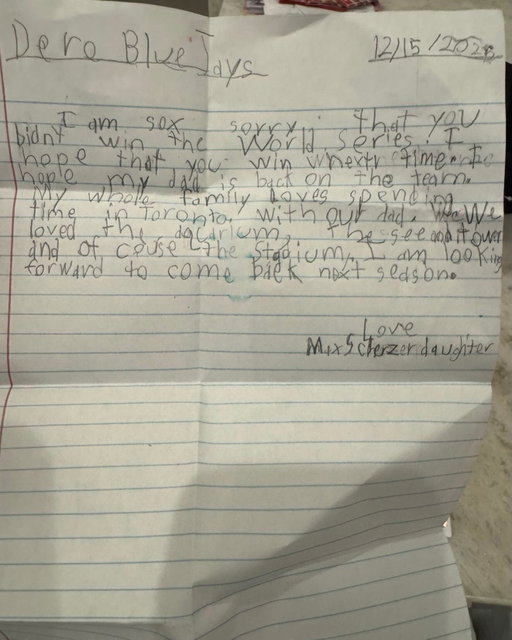 Dero Blue Jays
12/15/202
I am sox sorry that you
bidnt win the World series. I
hope that you win wnextr time. I
hople my dad is back on the team.
My whole family loves spending
time in Toronto, with out dad. We
loved the aqcarium, the see ondt ower
and of couse the stadium. I am looking
forward to come back next season.
Love
Max Scherzer daughter